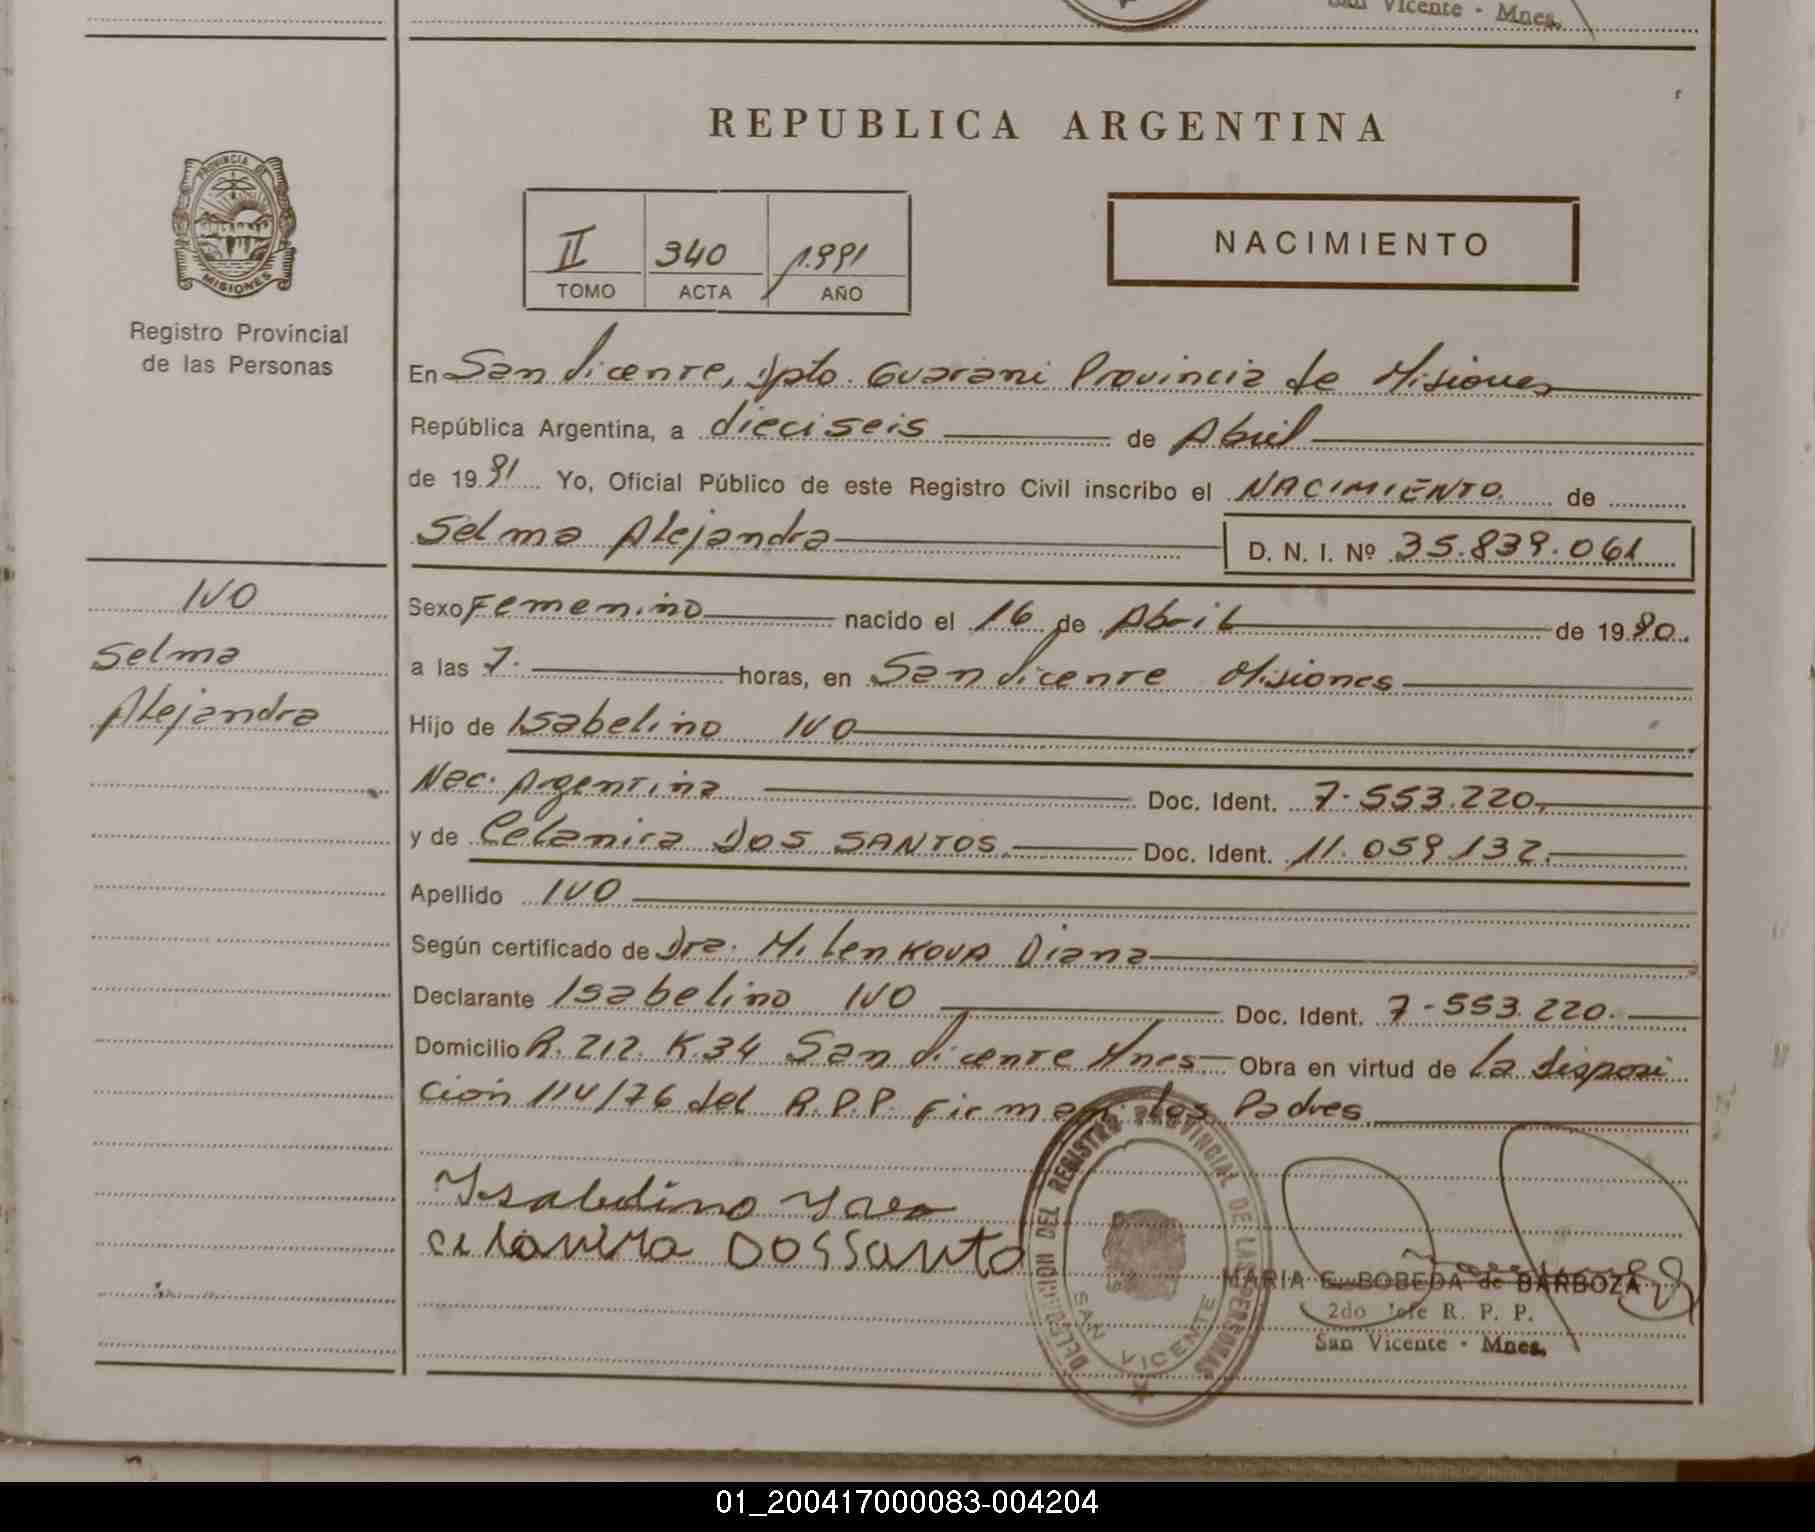 San Vicente - Mnes.
REPUBLICA ARGENTINA
PROVINCIA DE
MISIONES
Registro Provincial
de las Personas
II 340 1.991
TOMO ACTA AÑO
NACIMIENTO
En San Vicente, Dpto. Guarani Provincia de Misiones
República Argentina, a dieciseis de Abril
de 1991 Yo, Oficial Público de este Registro Civil inscribo el NACIMIENTO. de
Selma Alejandra D. N. I. Nº 35.839.061
IVO
Selma
Alejandra
Sexo Femenino nacido el 16 de Abril de 1990.
a las 7. horas, en San Vicente Misiones
Hijo de Isabelino IVO
Nac. Argentina Doc. Ident. 7.553.220,
y de Celanira DOS SANTOS. Doc. Ident. 11.059.132.
Apellido IVO
Según certificado de Dra. Milenkova Diana
Declarante Isabelino IVO Doc. Ident. 7.553.220.
Domicilio R. 212. K.34 San Vicente Mnes. Obra en virtud de la disposi
ción 114/76 del R.P.P. Firman los Padres
Ysabelino Yvo
celanira DosSanto
DELEGACION DEL REGISTRO PROVINCIAL DE LAS PERSONAS
SAN VICENTE
MARIA E. BOBEDA de BARBOZA
2do Jefe R. P. P.
San Vicente - Mnes.
01_200417000083-004204